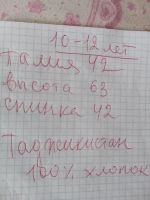 10-12 лет
талия 42
высота 63
спинка 42
Таджикистан
100% хлопок